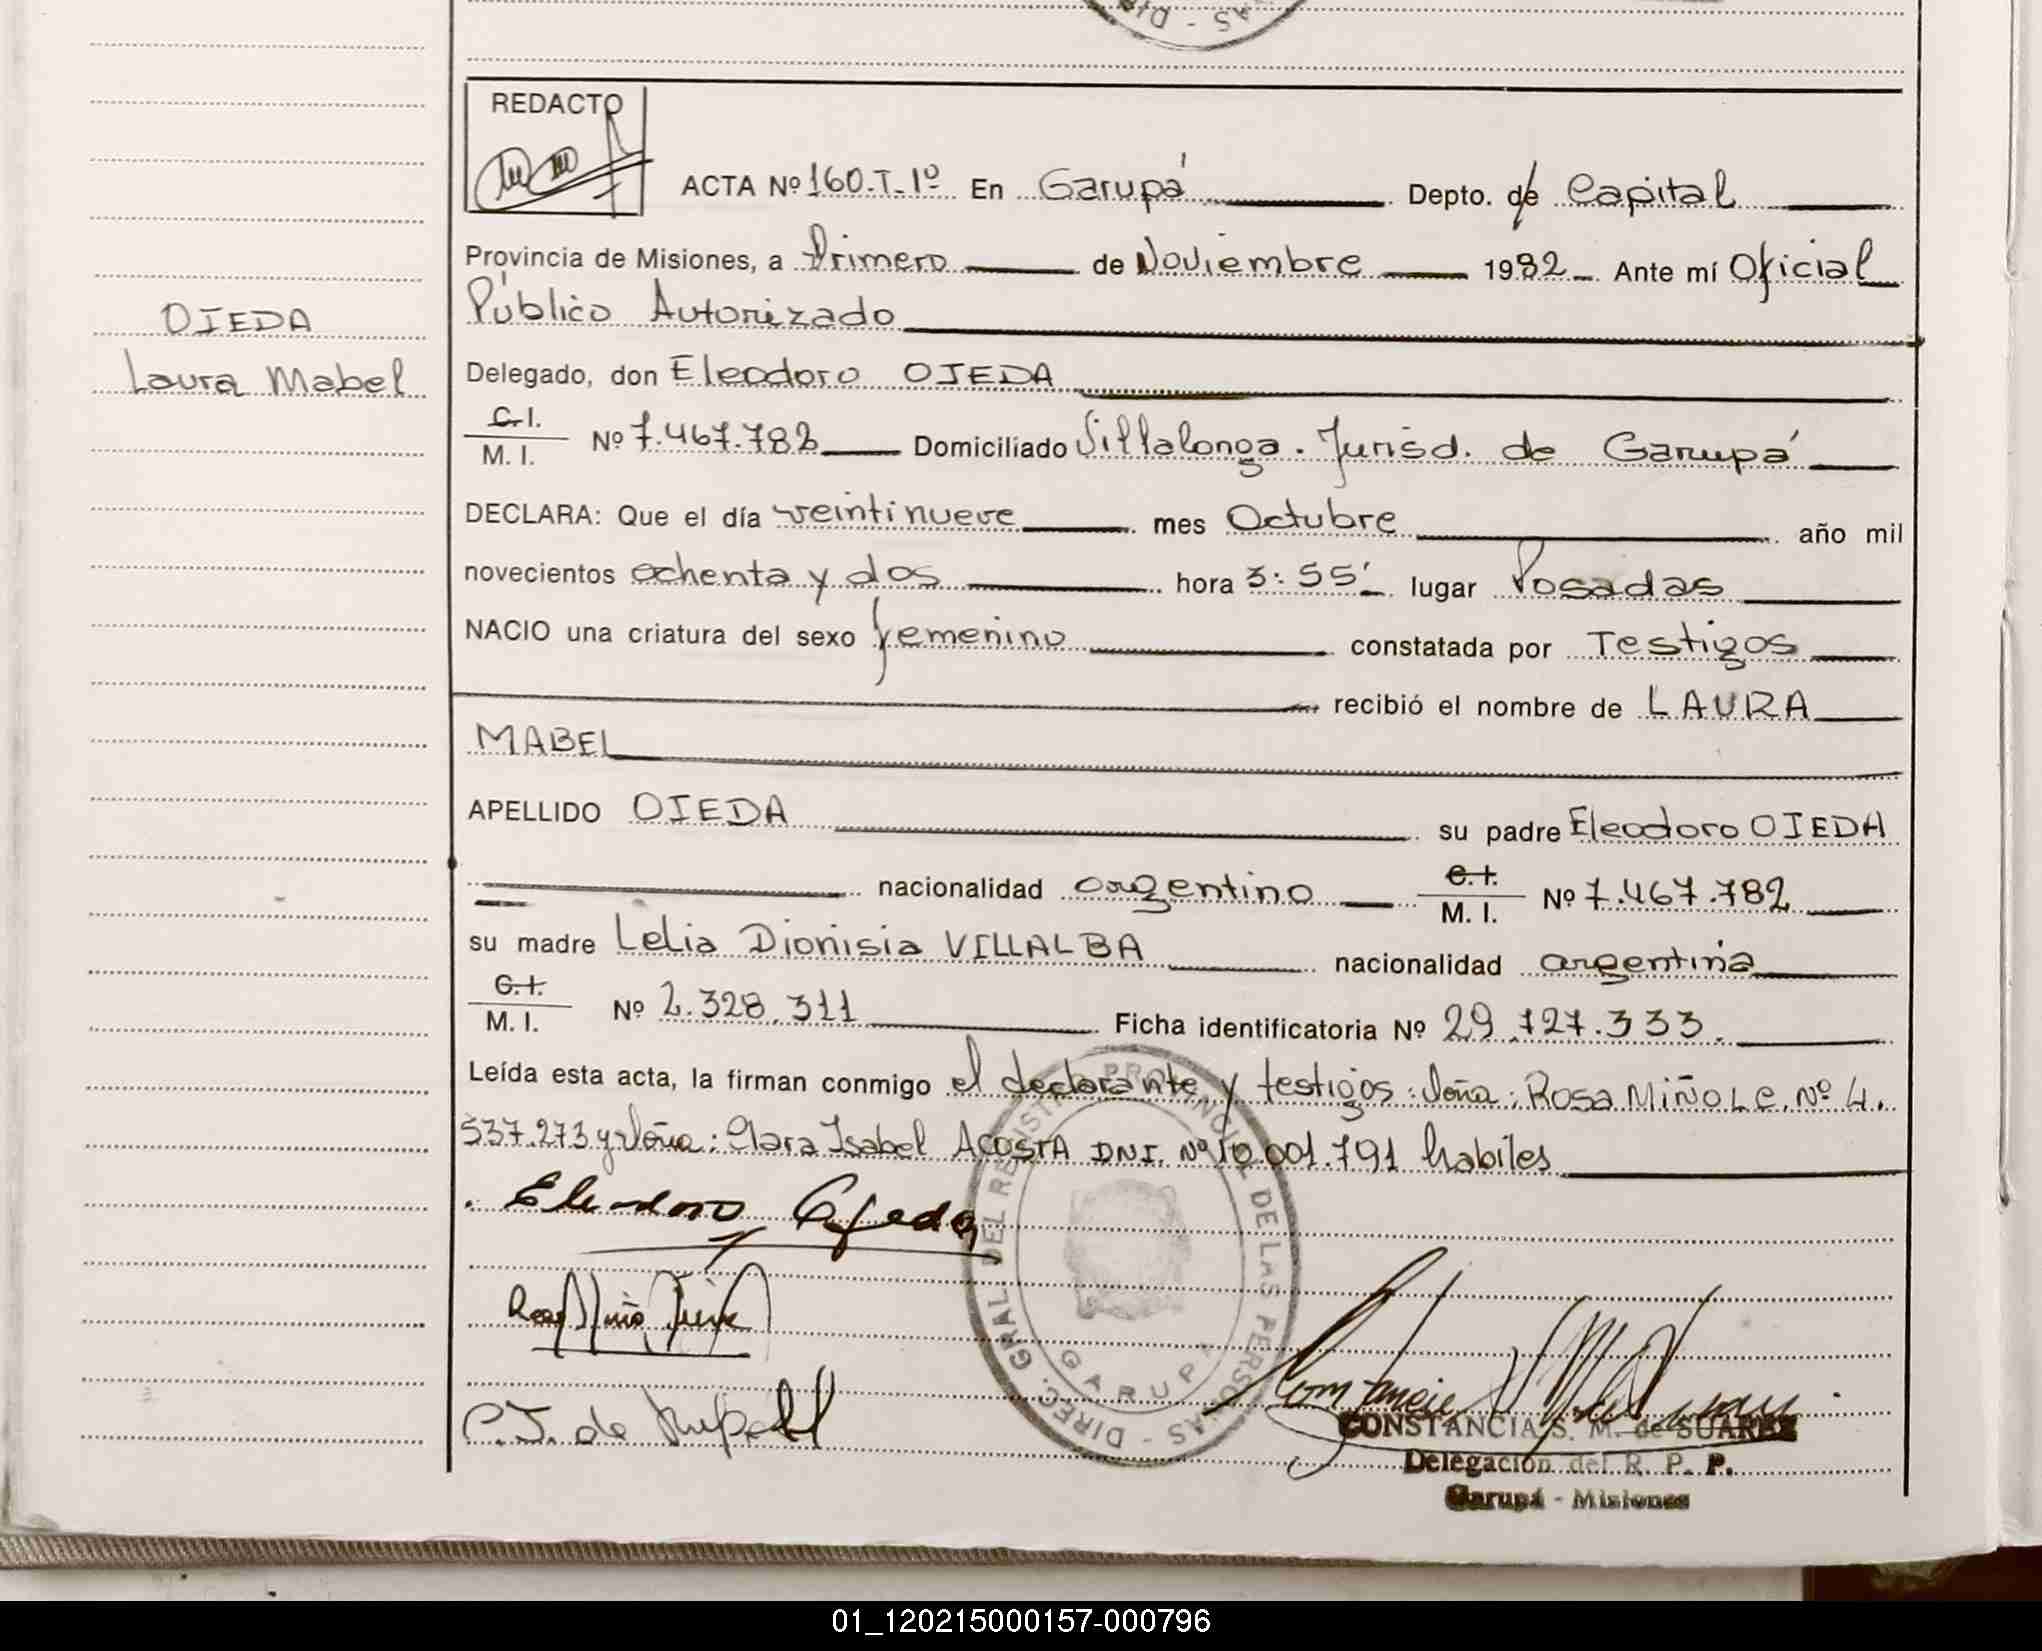 DIR - AS
REDACTO
ACTA Nº 160.T-1º En Garupá Depto. de Capital
Provincia de Misiones, a Primero de Noviembre 1982 Ante mí Oficial
Público Autorizado
OJEDA
Laura Mabel
Delegado, don Eleodoro OJEDA
C.I. M.I. Nº 7.467.782 Domiciliado Villalonga. Jurisd. de Garupá
DECLARA: Que el día veintinueve mes Octubre año mil
novecientos ochenta y dos hora 3:55' lugar Posadas
NACIO una criatura del sexo femenino constatada por Testigos
recibió el nombre de LAURA
MABEL
APELLIDO OJEDA su padre Eleodoro OJEDA
nacionalidad argentino C.I. M.I. Nº 7.467.782
su madre Lelia Dionisia VILLALBA nacionalidad argentina
C.I. M.I. Nº 2.328.311 Ficha identificatoria Nº 29.727.333.
Leída esta acta, la firman conmigo el declarante y testigos: doña: Rosa MIÑO L.C. Nº 4.
537.273 y doña: Clara Isabel ACOSTA DNI. Nº 10.001.791 habiles
Eleodoro Ojeda
C.J. de
DIREC. GRAL. DEL REGISTRO PROVINCIAL DE LAS PERSONAS - GARUPA
CONSTANCIA S. M. de SUAREZ
Delegación del R. P. P.
Garupá - Misiones
01_120215000157-000796